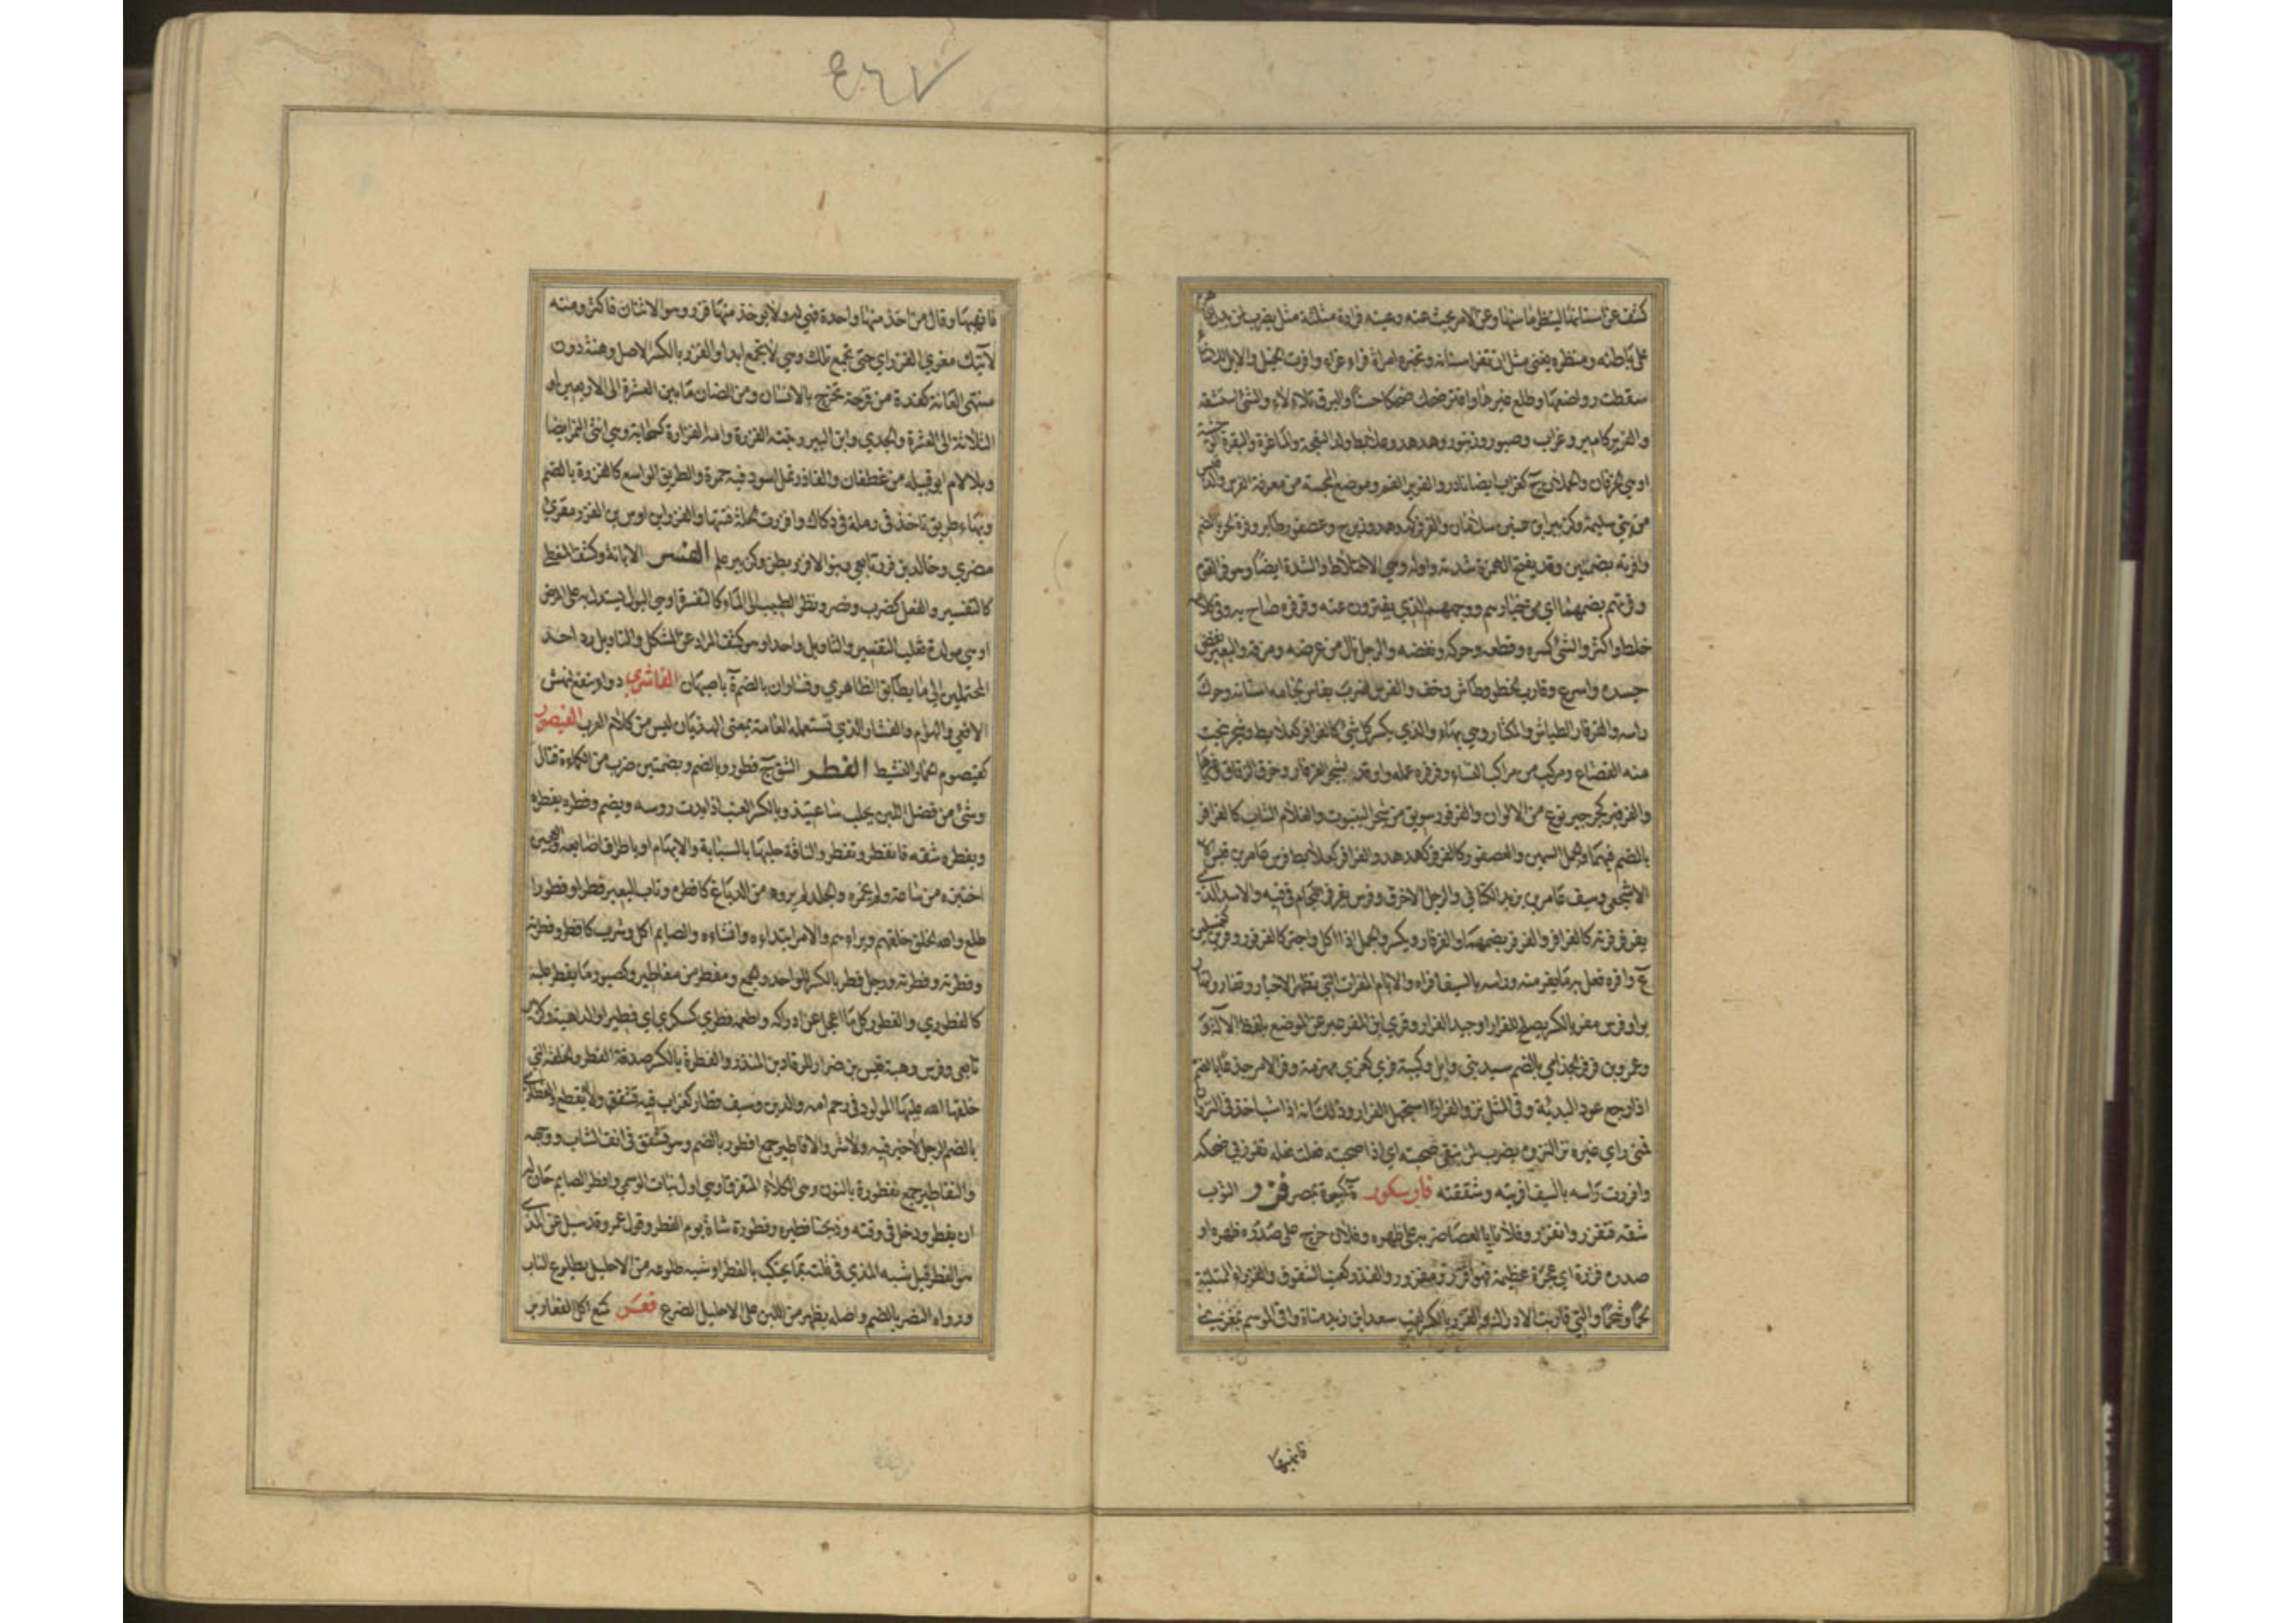 ٤٦٧
كشف عن اسنانها لينظر ما سنها وعن الامر بحث عنه وعينه فراره مثلثة مثل يضرب لمن يدل
على باطنه ومنظره يغنى عن ان تفر اسنانه وتخبره امراة فراء غراء وافرت الخيل والابل للاثناء
سقطت رواضعها وطلع غيرها وافتر ضحك ضحكا حسنا والبرق تلاءلاء والشئ استنشقه
والفرير كامير وغراب وصبور وزنبور وهدهد وعلابط ولد النعجة والماعزة والبقرة
او هي الخرفان والحملان ج كغراب ايضا نادر والفرير الفم وموضع المجسة من معرفة الفرس والد قيس
من بني سلمة وكزبير ابن عنين سلامان والفرفر كهدهد وزبرج وعصفور طاير وفرة الحر بالضم
وافرته بضمتين وقد يفتح الهمزة شدته واوله وهي الاختلاط والشدة ايضا وهو فر القوم
وفرتهم بضمهما اي من خيارهم ووجههم الذي يفترون عنه وفرفره صاح به وفي كلامه
خلط واكثر والشئ كسره وقطعه وحركه ونفضه والرجل نال من عرضه ومزقه والبعير نفض
جسده واسرع وقارب الخطو وطاش وخف والفرس ضرب بفاس لجامه اسنانه وحرك
راسه والفرفار الطياش والمكثار وهي بهاء والذي يكسر كل شئ كالفرافر كعلابط وشجر ينحت
منه القصاع ومركب من مراكب النساء وفرفر عمله واوقد بشجر الفرفار وخرق الزقاق وغيرها
والفرفير كجرجير نوع من الالوان والفرفور سويق من شجر الينبوت والغلام الشاب كالفرافر
بالضم فيهما والجمل السمين والعصفور كالفرفر كهدهد والفرافر كعلابط فرس عامر بن قيس
الاشجعي وسيف عامر بن يزيد الكناني والرجل الاخرق وفرس يفرفر اللجام في فيه والاسد الذي
يفرفر قرنه كالفرافرة والفرفر بضمهما والفرفار ويكسر والجمل اذا اكل واجتر كالفرفور وفرين كغسلين
ع وافره فعل به ما يفر منه وراسه بالسيف افراه والايام المفرات التي تظهر الاخبار وتفاروا تهاربوا
وفرس مفر بالكسر يصلح للفرار او جيد الفرار وقرئ اين المفر عبر عن الموضع بلفظ الالة
وعمرو بن فرفر الجذامي بالضم سيد بني وايل وكتيبة فرى كعزى منهزمة وفر الامر جذعا بالضم
اذا رجع عودا لبدئه وفي المثل نزو الفرار استجهل الفرار وذلك انه اذا شب اخذ في النزوان
فمتى راى غيره نزا لنزوه يضرب لمن تتقى صحبته اي اذا صحبته فعلت فعله تفرر بي ضحك
وافررت راسه بالسيف افريته وشققته فارسكور ة كبيرة بمصر فزر الثوب
شقه فتفزر وانفزر وفلانا بالعصا ضربه على ظهره وفلان خرج على صدره وظهره او
صدره فزرة اي عجرة عظيمة فهو افزر ومفزور والفزر كعنب الشقوق والفزراء الممتلئة
لحما وشحما والتي قاربت الادراك والفزر بالكسر لقب سعد ابن زيد مناة وافى الموسم بمعزى
فانهبها
فانهبها وقال من اخذ منها واحدة فهي له ولا يوخذ منها فزر وهو الاثنان فاكثر ومنه
لا اتيك معزى الفزر اي حتى تجتمع تلك وهي لا تجتمع ابدا والفزر بالكسر الاصل وهنة دون
منتهى العانة كغدة من قرحة تخرج بالانسان ومن الضان ما بين العشرة الى الاربعين او
الثلاثة الى العشرة والجدي وابن الببر وبنته الفزرة وامه الفزارة كسحابة وهي انثى النمر ايضا
وبلا لام ابو قبيلة من غطفان والفازر نمل اسود فيه حمرة والطريق الواسع كالفزرة بالضم
وبهاء طريق تاخذ في رملة في دكاك وافزرت الجلة فتتها والفزر ابن اوس بن الفزر مقرئ
مصري وخالد بن فزر تابعي وبنو الافزر بطن وكزبير علم الفسر الابانة وكشف المغطى
كالتفسير والفعل كضرب ونصر ونظر الطبيب الى الماء كالتفسرة او هي البول يستدل به على المرض
او هي مولدة ثعلب التفسير والتاويل واحد او هو كشف المراد عن المشكل والتاويل رد احد
المحتملين الى ما يطابق الظاهر وفساوران بالضم ة باصبهان الفاشري دواء ينفع لنهش
الافعى والهوام والفشار الذي تستعمله العامة بمعنى الهذيان ليس من كلام العرب الفيصور
كقيصوم الحمار النشيط الفطر الشق ج فطور وبالضم وبضمتين ضرب من الكماءة قتال
وشئ من فضل اللبن يحلب ساعتئذ وبالكسر العنب اذا بدت روسه ويضم وفطره يفطره
ويفطره شقه فانفطر وتفطر والناقة حلبها بالسبابة والابهام او باطراف اصابعه والعجين
اختبزه من ساعته ولم يخمره والجلد لم يروه من الدباغ كافطره وناب البعير فطرا وفطورا
طلع والله الخلق خلقهم وبراءهم والامر ابتداءه وانشاءه والصايم اكل وشرب كافطر وفطرته
وفطرته وافطرته ورجل فطر بالكسر للواحد والجمع ومفطر من مفاطير وكصبور ما يفطر عليه
كالفطوري والفطير كل ما اعجل عن ادراكه واطعمه فطرى كسكرى اي فطيرا والداهية وكزبير
تابعي وفرس وهبه قيس بن ضرار للرقاد بن المنذر والفطرة بالكسر صدقة الفطر والخلقة التي
خلقها الله عليها المولود في رحم امه والدين وسيف فطار كغراب فيه تشقق ولا يقطع والفطاري
بالضم الرجل لا خير فيه ولا شر والافاطير جمع افطور بالضم وهو تشقق في انف الشاب ووجهه
والنفاطير جمع نفطورة بالنون وهي الكلاء المتفرق او هي اول نبات الوسمي وافطر الصايم حان له
ان يفطر ودخل في وقته وذبحنا فطيرة وفطورة شاة يوم الفطر وقول عمر وقد سيل عن المذي
هو الفطر قيل شبه المذي في قلته بما يحتلب بالفطر او شبه طلوعه من الاحليل بطلوع الناب
ورواه النضر بالضم واصله ما يظهر من اللبن على الاحليل الضرع فعر كمنع اكل الفعارير